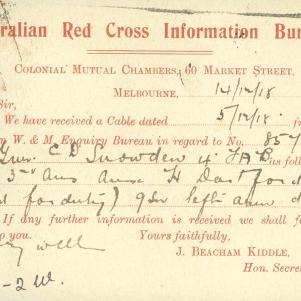 ralian Red Cross Information Bur
Colonial Mutual Chambers, 60 Market Street,
Melbourne, 14/12/18
Sir,
We have received a Cable dated 5/12/18. fr
n W. & M. Enquiry Bureau in regard to No. 857
Gnr. C D Snowden 4 F A B as follo
3rd Aus H for d
for duty) left arm
If any further information is received we shall fo
Yours faithfully,
J. BEACHAM KIDDLE,
Hon. Secre